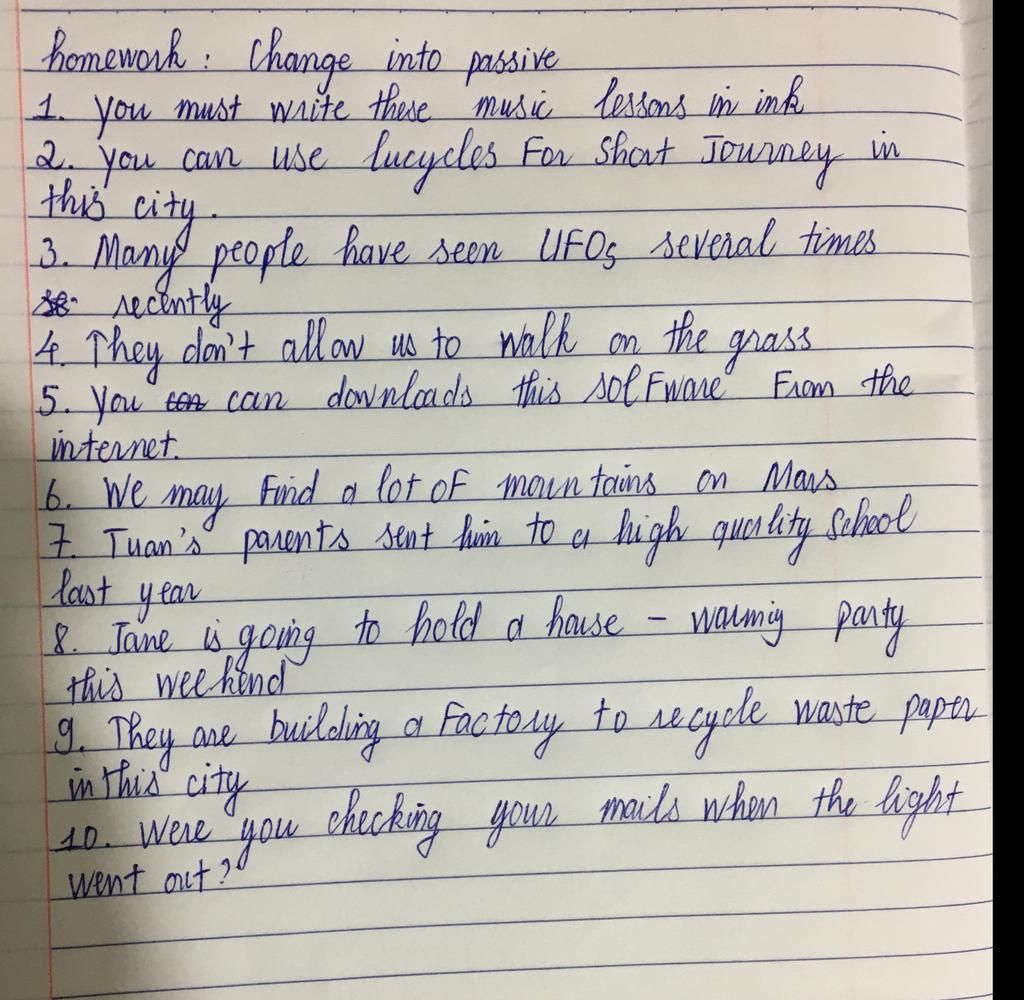 homework : Change into passive
1. you must write these music lessons in ink
2. you can use lucycles For short Journey in
this city.
3. Many people have seen UFOs several times
recently
4. They don't allow us to walk on the grass
5. you can downloads this solFware From the
internet.
6. We may Find a lot oF mountains on Mars
7. Tuan's parents sent him to a high quality School
last year
8. Jane is going to hold a house - warmig party
this weekend
9. They are building a Factory to recycle waste paper
in this city
10. Were you checking your mails when the light
went out?